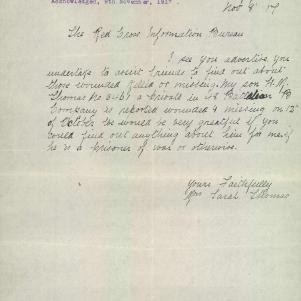 Acknowledged, 9th November, 1917.
Nov 8 17
The Red Cross Information Bureau
I see you advertise you
undertake to assist friends to find out about
those wounded killed or missing. My son H.
Thomas No 3461 a private in 48 Battalion B
Company is reported wounded & missing on 12th
of October. We would be very greatful if you
could find out anything about him for me if
he is a prisoner of war or otherwise.
Yours Faithfully
Mrs Sarah Thomas